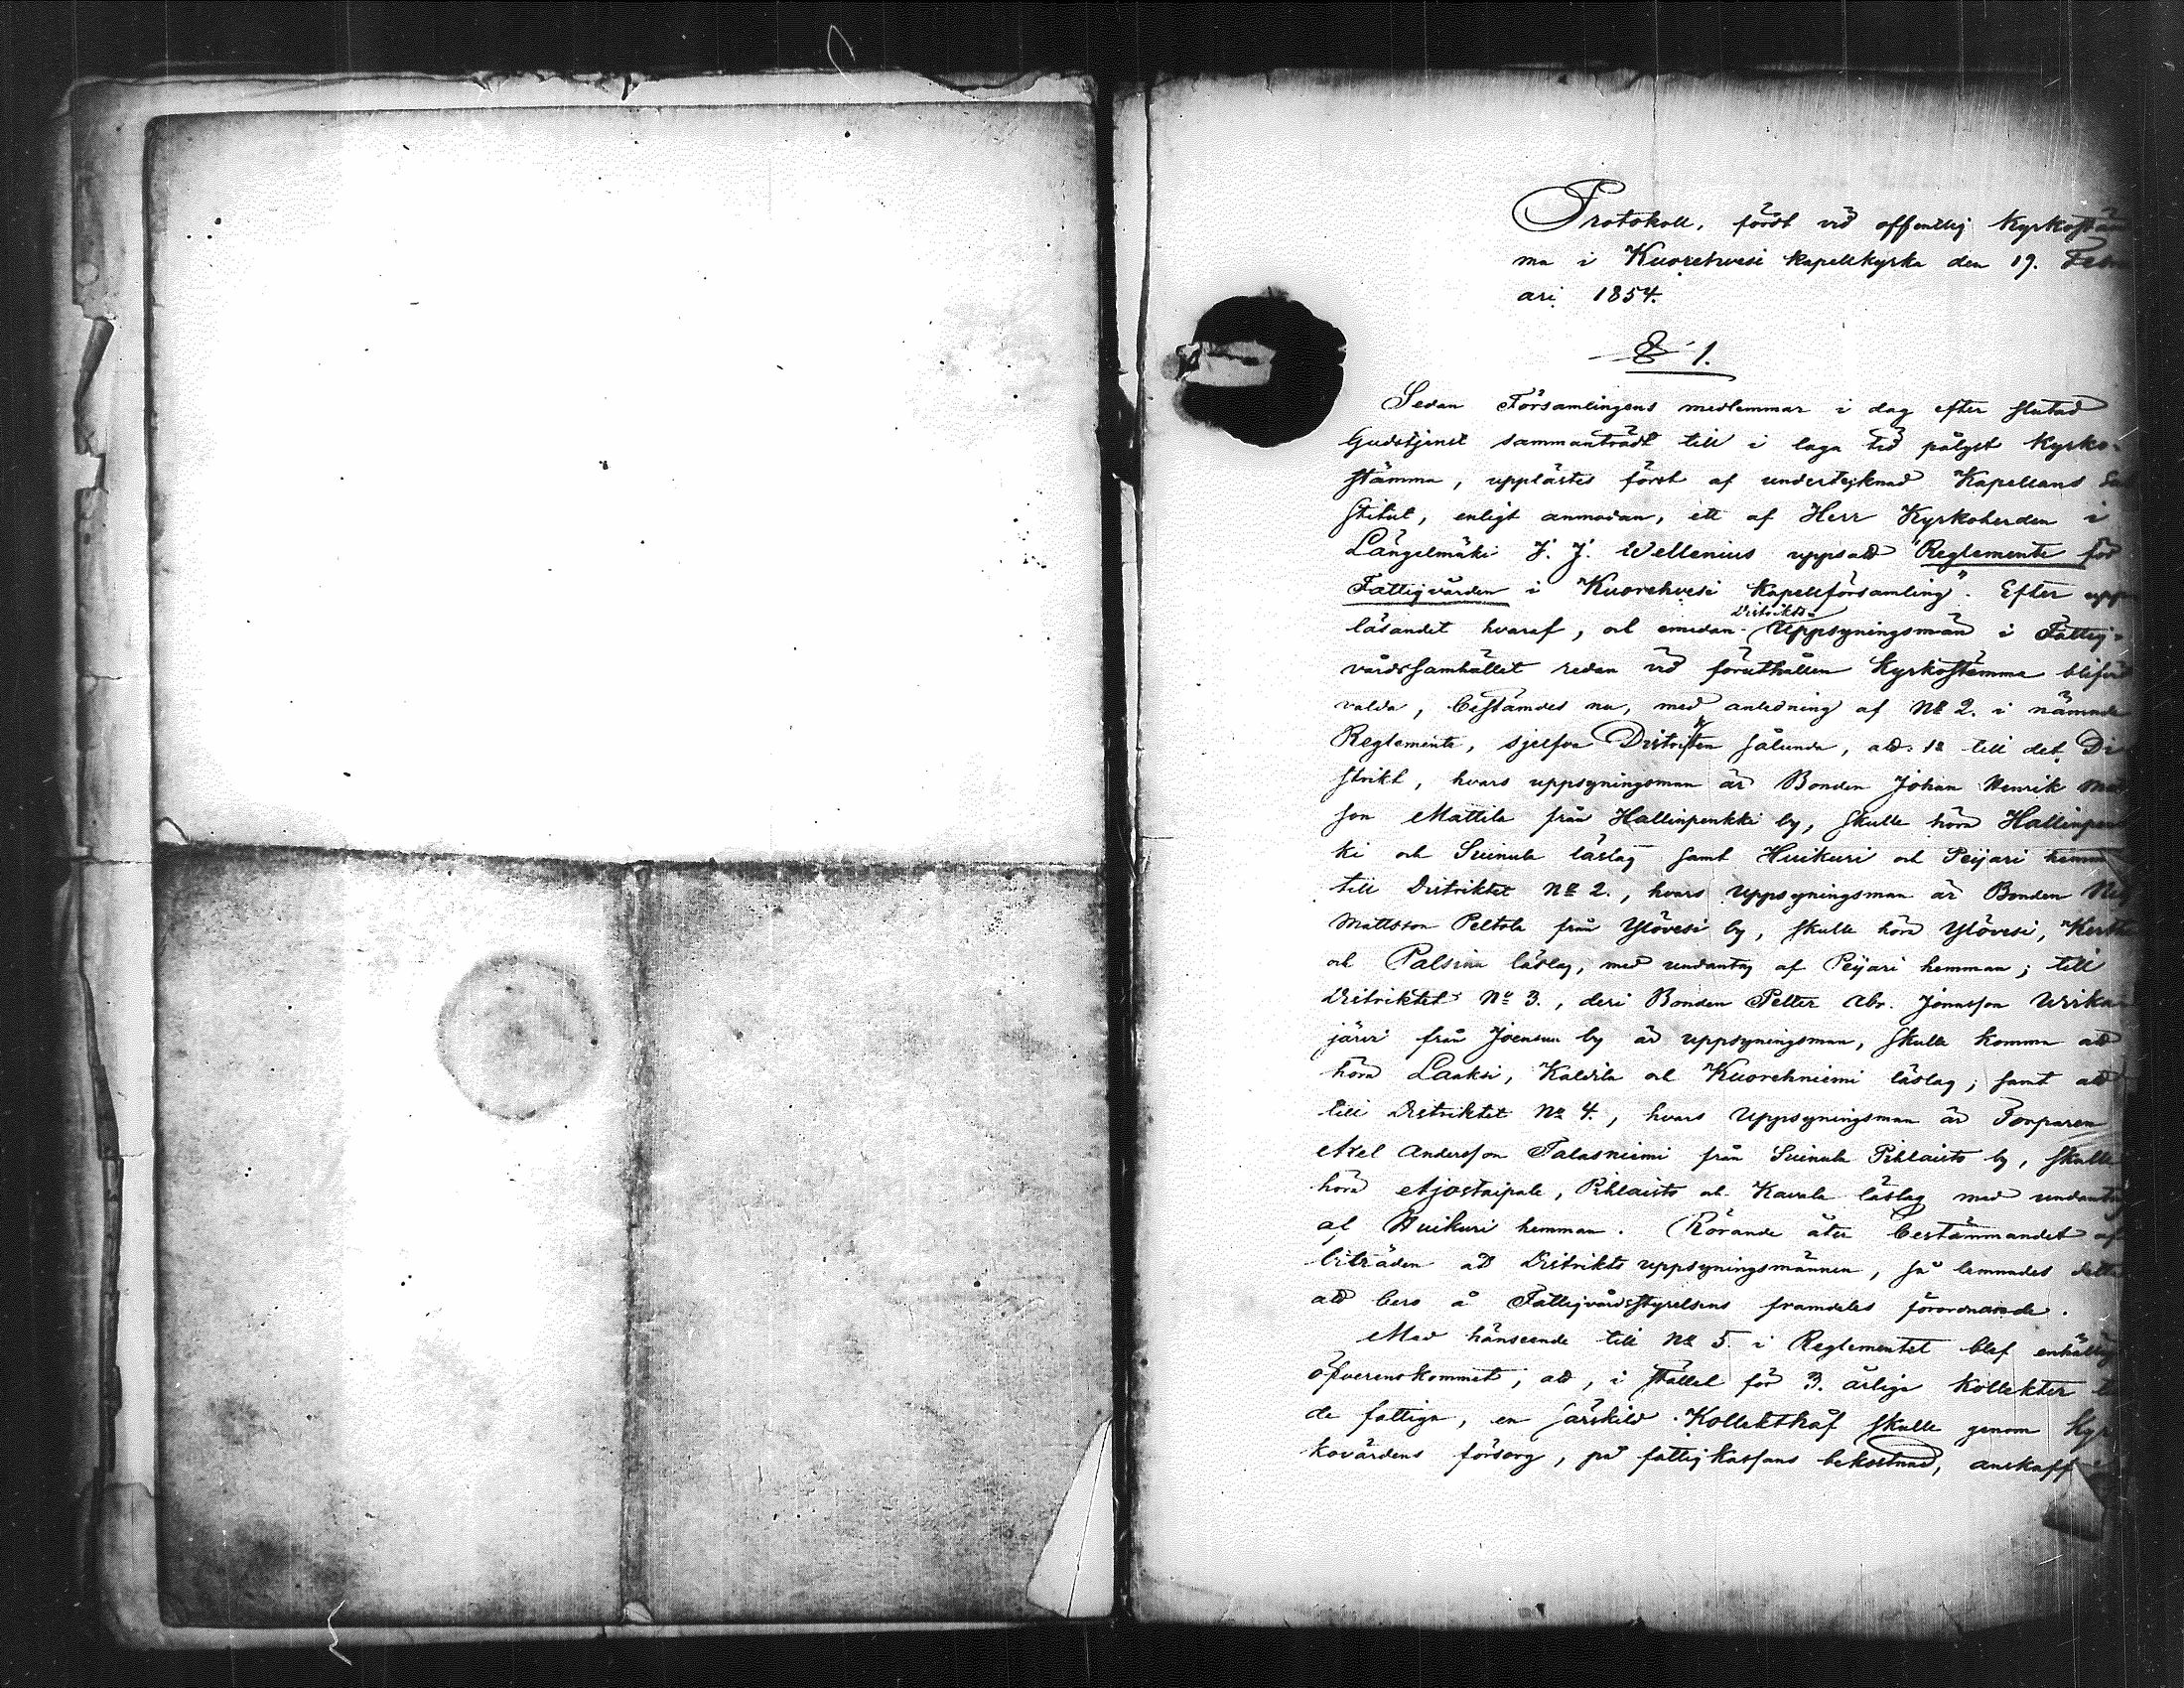 Protokoll, fördt vid offentlig Kyrkostäm
ma i Kuorehvesi Kapellkyrka den 19. Febru
ari 1854.
§ 1.
Sedan Församlingens medlemmar i dag efter slutad
Gudstjenst sammanträdt till i laga tid pålyst Kyrko-
stämma, upplästes först af undertecknad Kapellans Sub
stitut, enligt anmodan, ett af Herr Kyrkoherden i
Längelmäki J. J. Wellenius uppsatt "Reglemente för
Fattigvården i Kuorehvesi Kapellförsamling". Efter upp
läsandet hvaraf, och emedan Distrikts-
Uppsyningsmän i Fattig-
vårdssamhället redan vid föruthållen Kyrkostämma blifvit
valda, bestämdes nu, med anledning af No 2. i nämnde
Reglemente, sjelfva Distrikten sålunda, att till det Di
strikt, hvars uppsyningsman är Bonden Johan Henrik Mats
son Mattila från Hallinpenkki by, skulle höra Hallinpenk
ki och Suinula läslag samt Huikuri och Peijari hemman
till Distriktet No 2., hvars Uppsyningsman är Bonden
Mattsson Peltola från Ylövesi by, skulle höra Ylövesi,
och Palsina läslag, med undantag af Peijari hemman; till
Distriktet No 3., deri Bonden Petter Abr. Jonasson
järvi från Joensuu by är uppsyningsman, skulle komma att
höra Laaksi, Kaldila och Kuorehniemi läslag; samt att
till Distriktet No 4., hvars Uppsyningsman är Torparen
Axel Andersson Talasniemi från Suinula Pihlaisto by, skulle
höra Ajostaipale, Pihlaisto och Kavala läslag med undantag
af Huikuri hemman. Rörande åter bestämmandet af
biträden åt Distrikts uppsyningsmännen, så lemnades detta
att bero å Fattigvårdsstyrelsens framdeles förordnande.
Med hänseende till No 5. i Reglementet blef enhälligt
öfverenskommet, att, i stället för 3. årliga Kollekter
de fattiga, en särskild Kollekthåf skulle genom Kyr
kovärdens försorg, på fattigkassans bekostnad, anskaff